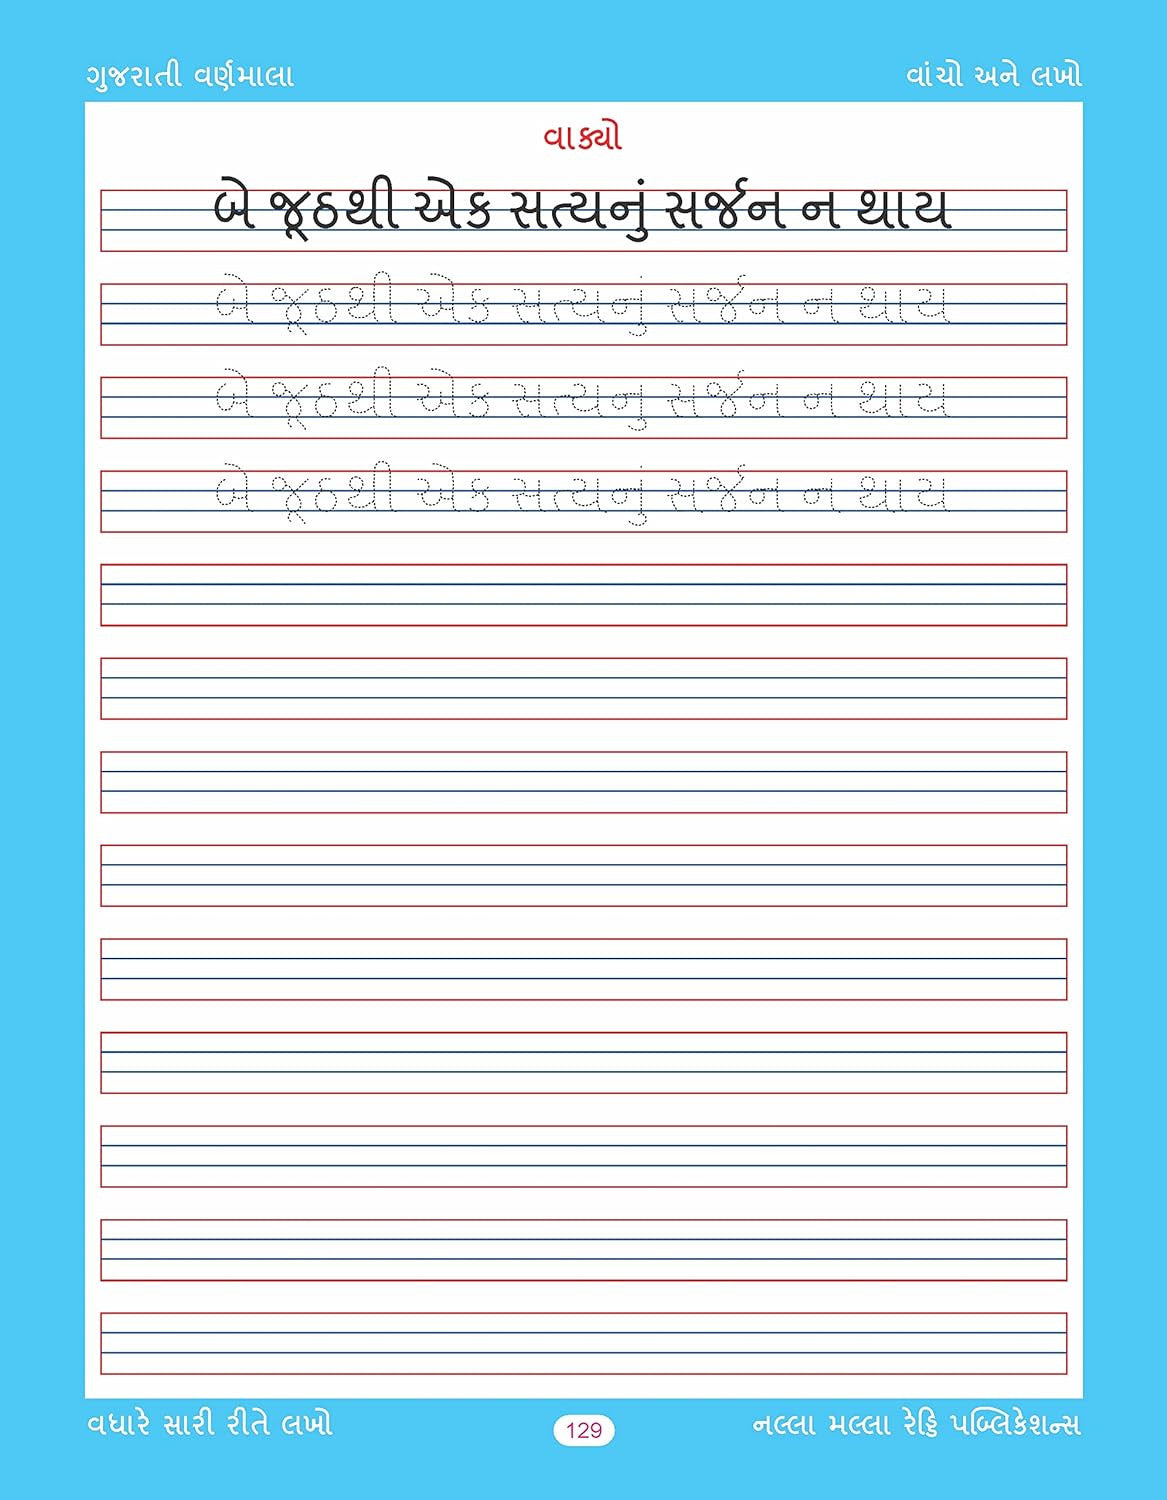 ગુજરાતી વર્ણમાલા
વાંચો અને લખો
વાક્યો
બે જૂઠથી એક સત્યનું સર્જન ન થાય
બે જૂઠથી એક સત્યનું સર્જન ન થાય
બે જૂઠથી એક સત્યનું સર્જન ન થાય
બે જૂઠથી એક સત્યનું સર્જન ન થાય
વધારે સારી રીતે લખો
129
નલ્લા મલ્લા રેડ્ડિ પબ્લિકેશન્સ